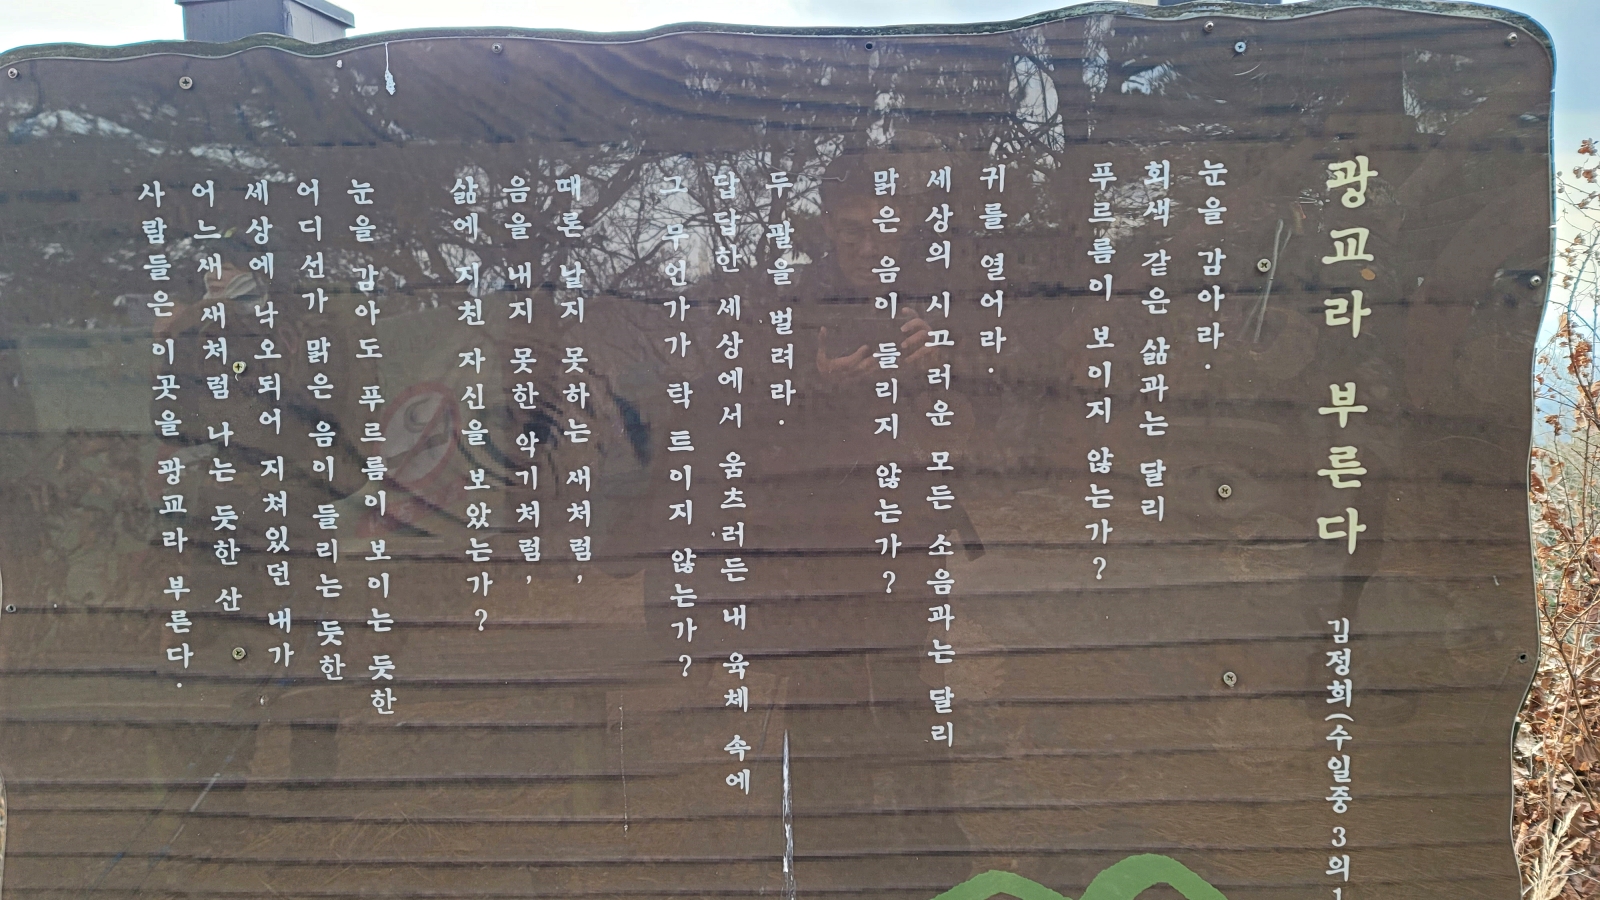 광교라 부른다
김정희(수일중 3의1
눈을 감아라.
회색 같은 삶과는 달리
푸르름이 보이지 않는가?
귀를 열어라.
세상의 시끄러운 모든 소음과는 달리
맑은 음이 들리지 않는가?
두 팔을 벌려라.
답답한 세상에서 움츠러든 내 육체 속에
그 무언가가 탁 트이지 않는가?
때론 날지 못하는 새처럼,
음을 내지 못한 악기처럼,
삶에 지친 자신을 보았는가?
눈을 감아도 푸르름이 보이는 듯한
어디선가 맑은 음이 들리는 듯한
세상에 낙오되어 지쳐있던 내가
어느새 새처럼 나는 듯한 산
사람들은 이곳을 광교라 부른다.